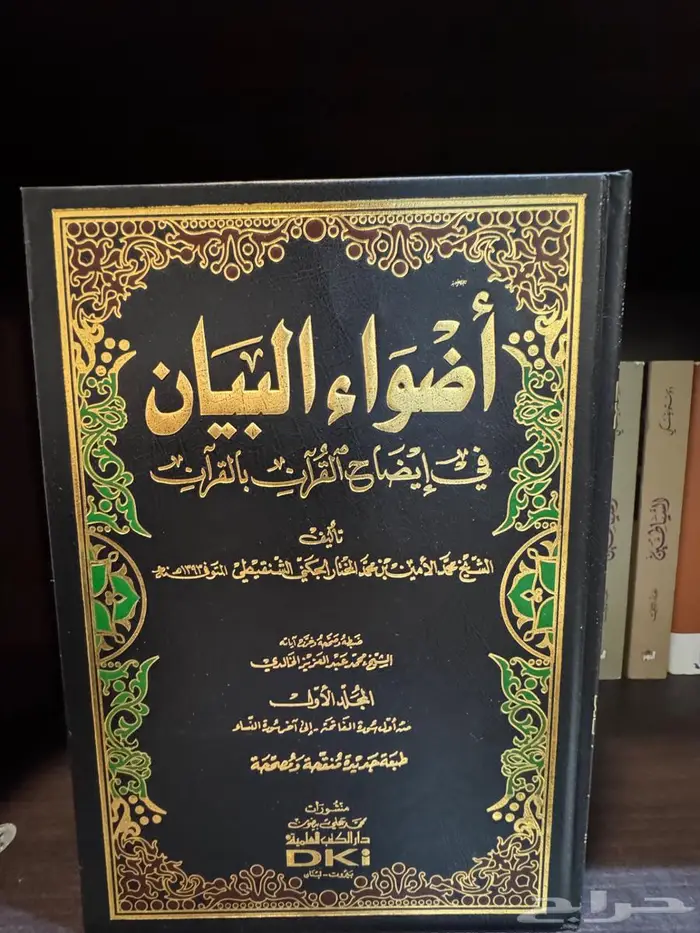 أضواء البيان
في إيضاح القرآن بالقرآن
تأليف
الشيخ محمد الأمين بن محمد المختار الجكني الشنقيطي المتوفى ١٣٩٣هـ
ضبطه وصححه وخرج آياته
الشيخ محمد عبد العزيز الخالدي
المجلد الأول
من أول سورة الفاتحة - إلى آخر سورة النساء
طبعة جديدة منقحة ومصححة
منشورات
محمد علي بيضون
دار الكتب العلمية
DKi
بيروت - لبنان
الشياطين
حراج